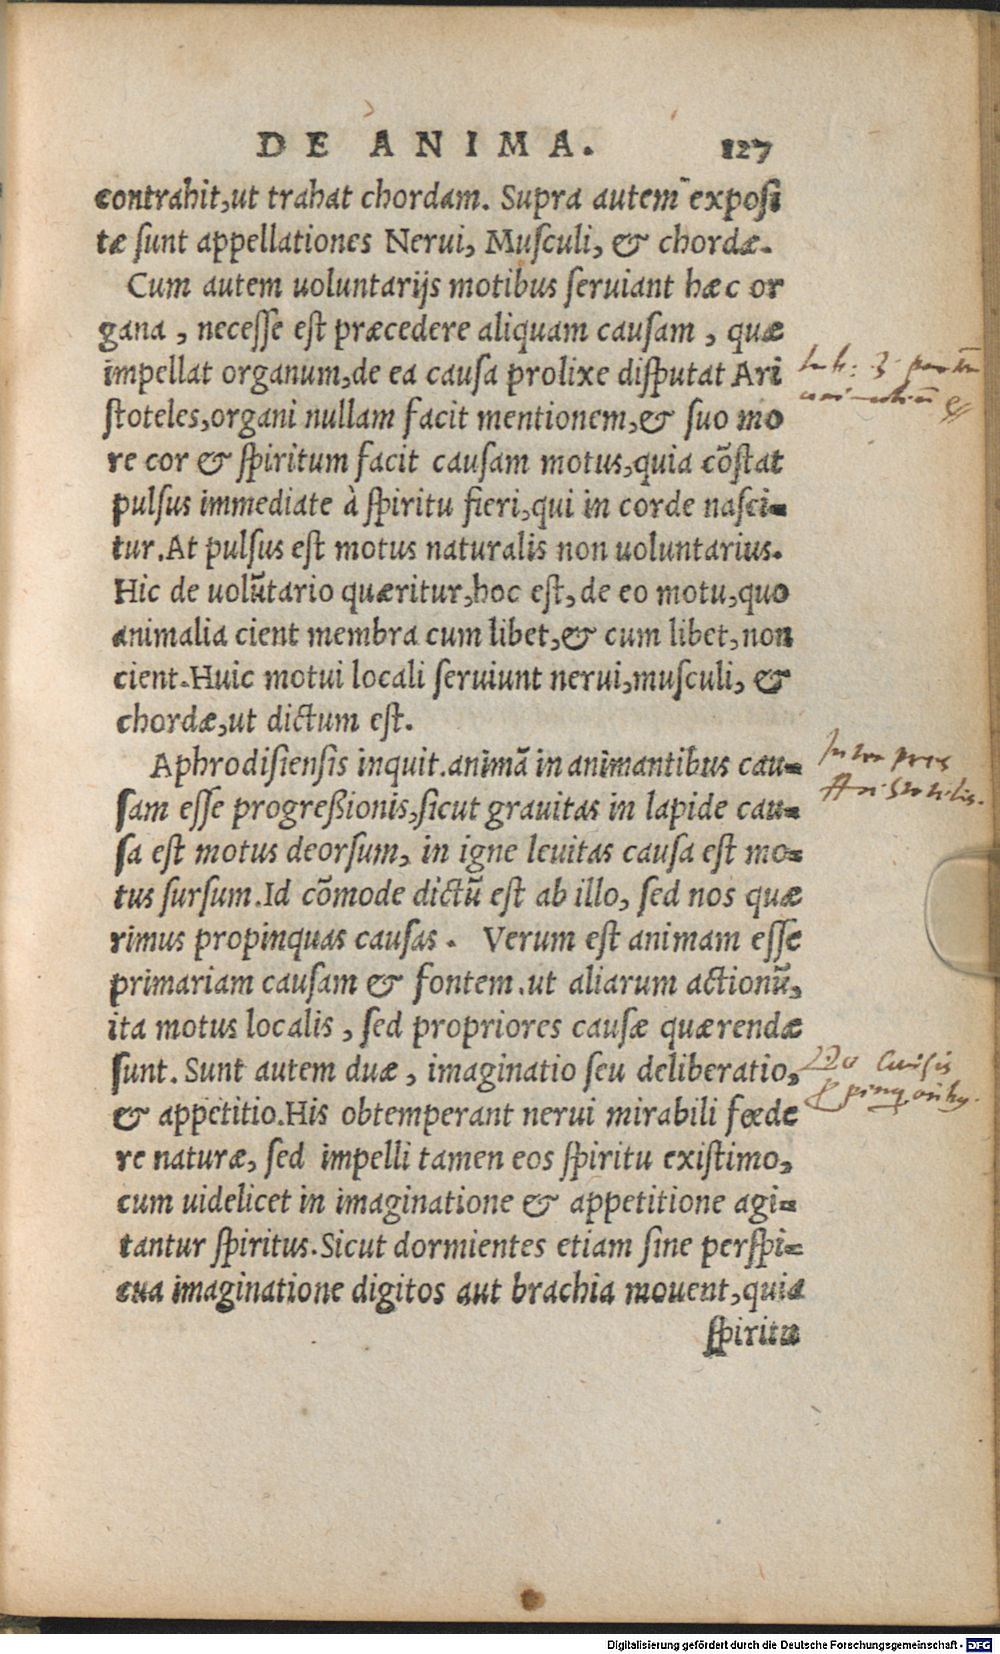 DE ANIMA. 127
contrahit,ut trahat chordam. Supra autem expoſi
tæ ſunt appellationes Nerui, Muſculi, & chordæ.
Cum autem uoluntarijs motibus ſeruiant hæc or
gana , neceſſe eſt præcedere aliquam cauſam , quæ
impellat organum,de ea cauſa prolixe diſputat Ari
ſtoteles,organi nullam facit mentionem,& ſuo mo
re cor & ſpiritum facit cauſam motus,quia cõſtat
pulſus immediate à ſpiritu fieri,qui in corde naſci-
tur.At pulſus eſt motus naturalis non uoluntarius.
Hic de uolũtario quæritur,hoc eſt,de eo motu,quo
animalia cient membra cum libet,& cum libet,non
cient.Huic motui locali ſeruiunt nerui,muſculi, &
chordæ,ut dictum eſt.
Aphrodiſienſis inquit.animã in animantibus cau-
ſam eſſe progreßionis,ſicut grauitas in lapide cau-
ſa eſt motus deorſum, in igne leuitas cauſa eſt mo-
tus ſurſum.Id cõmode dictũ eſt ab illo, ſed nos quæ
rimus propinquas cauſas . Verum eſt animam eſſe
primariam cauſam & fontem.ut aliarum actionũ,
ita motus localis , ſed propriores cauſæ quærendæ
ſunt. Sunt autem duæ , imaginatio ſeu deliberatio,
& appetitio.His obtemperant nerui mirabili fœde
re naturæ, ſed impelli tamen eos ſpiritu exiſtimo,
cum uidelicet in imaginatione & appetitione agi-
tantur ſpiritus.Sicut dormientes etiam ſine perſpi-
cua imaginatione digitos aut brachia mouent,quia
ſpiritu
Interpres
Aristotelis.
Digitalisierung gefördert durch die Deutsche Forschungsgemeinschaft - DFG